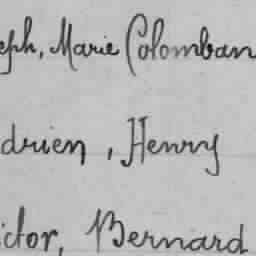 eph, Marie Colomban
drien, Henry
ictor, Bernard